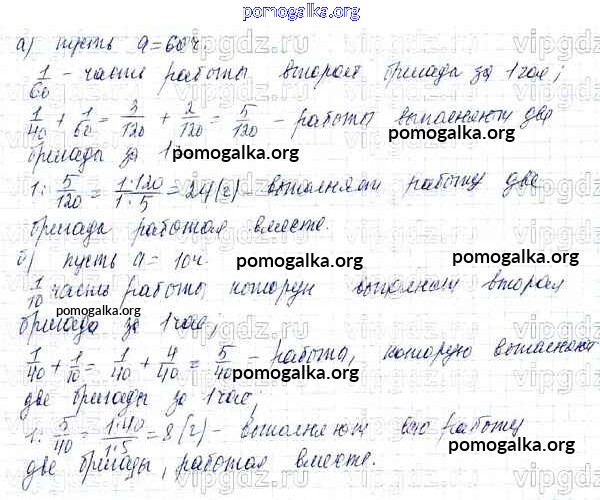 pomogalka.org
а) пусть a = 60 ч
1/60 - часть работы вторая бригада за 1 час;
1/40 + 1/60 = 3/120 + 2/120 = 5/120 - работы выполняют две
бригады за 1
pomogalka.org
1 : 5/120 = 1·120/1·5 = 24 (г) - выполняет работу две
бригады работая вместе.
б) пусть a = 10 ч.
pomogalka.org
pomogalka.org
1/10 часть работы которую выполнит вторая
бригада за 1 час;
pomogalka.org
1/40 + 1/10 = 1/40 + 4/40 = 5/40 - работа, которую выполняют
две бригады за 1 час.
pomogalka.org
1 : 5/40 = 1·40/1·5 = 8 (г) - выполняют всю работу
pomogalka.org
две бригады, работая вместе.